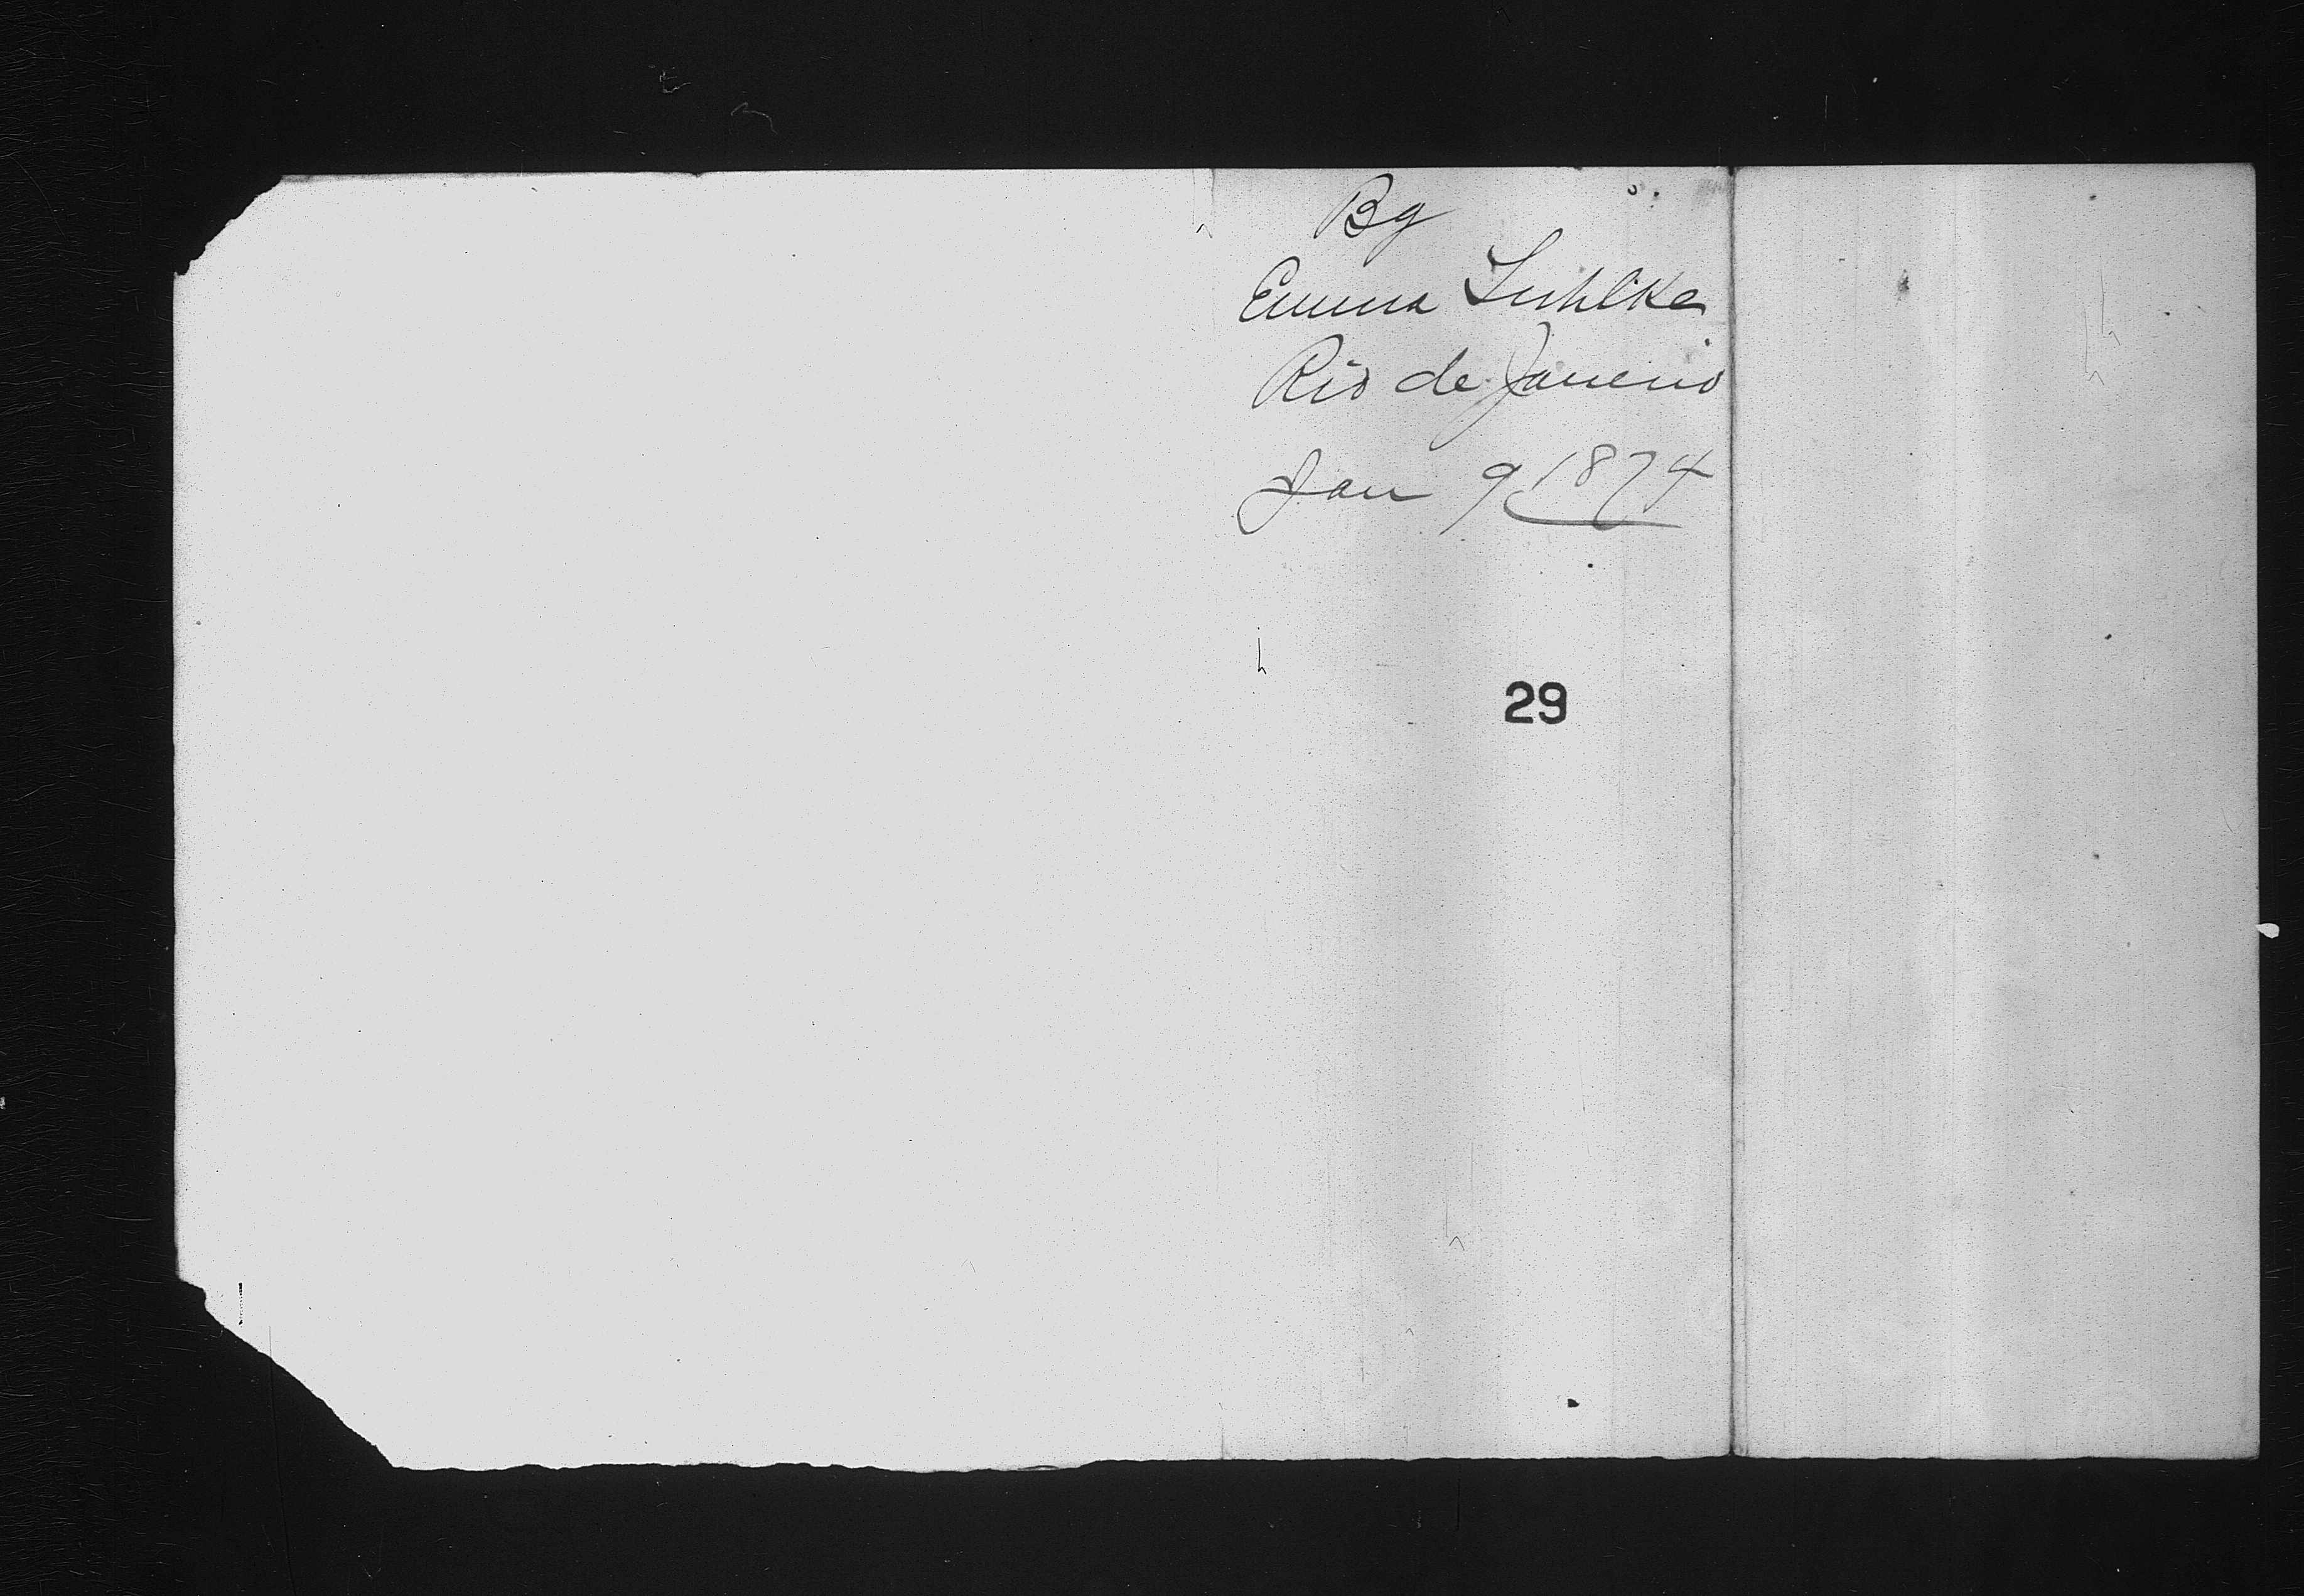 Bg
Emma Luhlke
Rio de Janeiro
Jan 9 1874
29